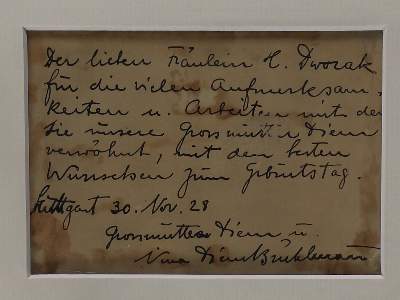 Der lieben Fräulein H. Dworak
für die vielen Aufmerksam-
keiten u. Arbeiten mit der
sie unsere Grossmutter Diem
verwöhnt, mit den besten
Wünschen zum Geburtstag.
Stuttgart 30. Nov. 28
Grossmutter Diem u.